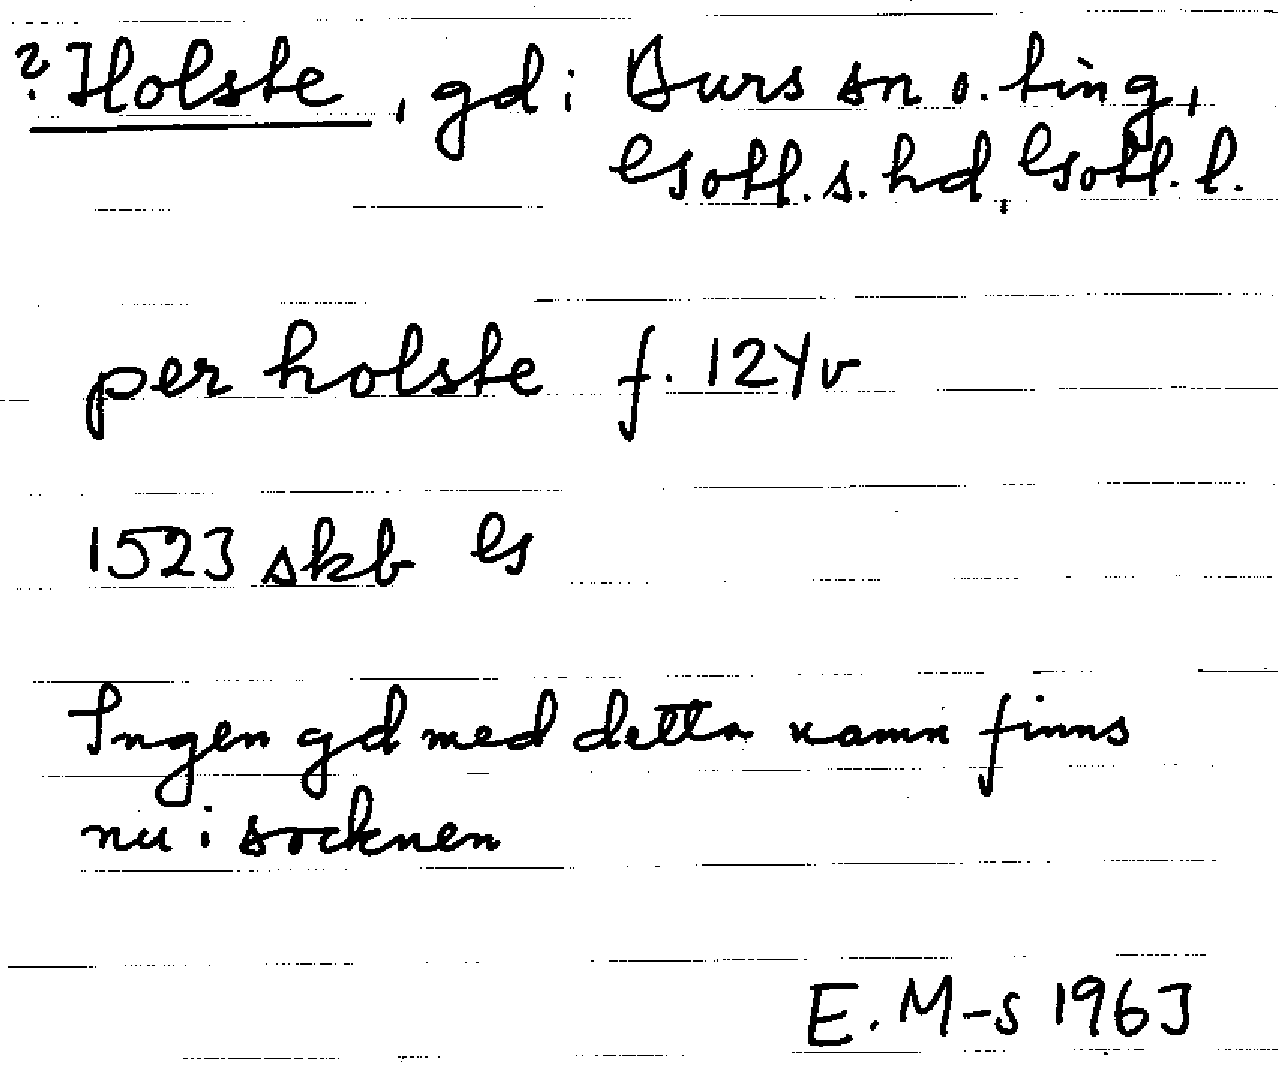 ? Holste, gd i Burs sn o. ting,
Gotl. s. hd, Gotl. l.
per holste f. 124v
1523 skb G
Ingen gd med detta namn finns
nu i socknen
E. M-s 1963